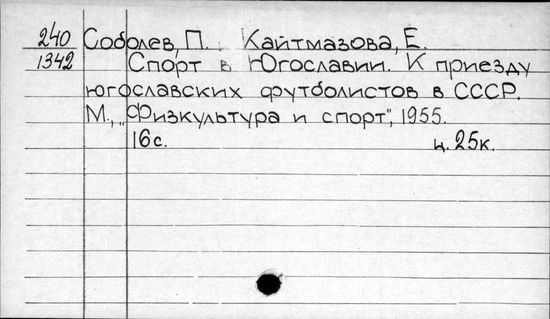 240 Соболев, П., Кайтмазова, Е.
1342 Спорт в Югославии. К приезду
югославских футболистов в СССР.
М., „Физкультура и спорт", 1955.
16 с. ц. 25к.